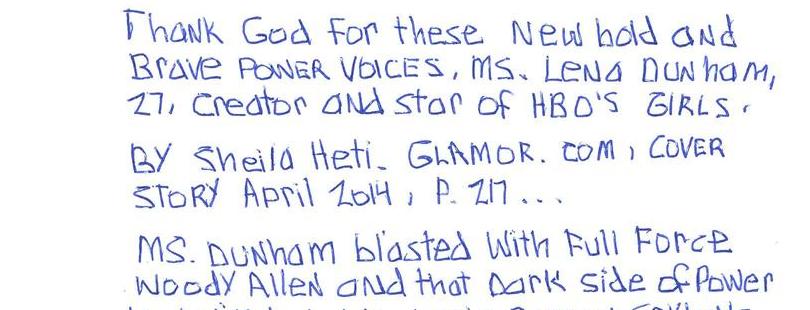 Thank God for these New bold and
Brave POWER VOICES, MS. Lena Dunham,
27, creator and star of HBO'S GIRLS.
BY Sheila Heti. GLAMOR. COM, COVER
STORY April 2014, P. 217...
MS. Dunham blasted With Full Force
Woody Allen and that Dark side of Power